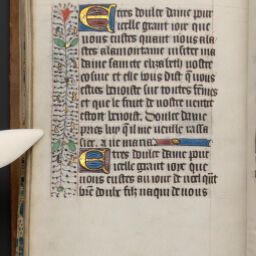 Tres doulce dame pour
icelle grant ioye que
vous eustes quant vous ala
stes alamontaine visiter ma
dame saincte elizabeth nostre
cosine et elle vous dist q̃ vous
esties benoiste sur toutes fẽmes
et que le fruit de vostre ventre
estoit benoist. Doulce dame
pries luy qu'il me veuille rassa
sier. Aue maria
Tres doulce dame pour
icelle grant ioye que
vous eustes au iour de noel qãt
vr̃e doulz filz naqui de vous